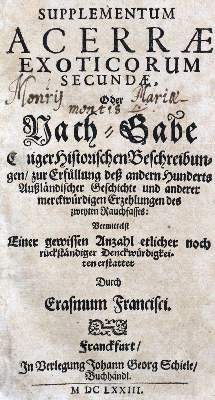 SUPPLEMENTUM
ACERRÆ
EXOTICORUM
SECUNDÆ,
Oder
Montis Mariæ-
montis
Nach-Gabe
Einiger Historischen Beschreibun-
gen / zur Erfüllung deß andern Hunderts
Außländischer Geschichte und anderer
merckwürdigen Erzehlungen des
zweyten Rauchfasses:
Vermittelst
Einer gewissen Anzahl etlicher noch
rückständiger Denckwürdigkei-
ten erstattet
Durch
Erasmum Francisci.
Franckfurt/
In Verlegung Johann Georg Schiele/
Buchhändl.
M DC LXXIII.